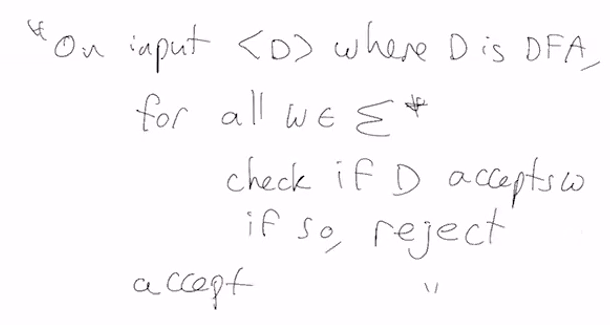 "On input <D> where D is DFA,
for all w ∈ Σ*
check if D accepts w
if so, reject
accept "